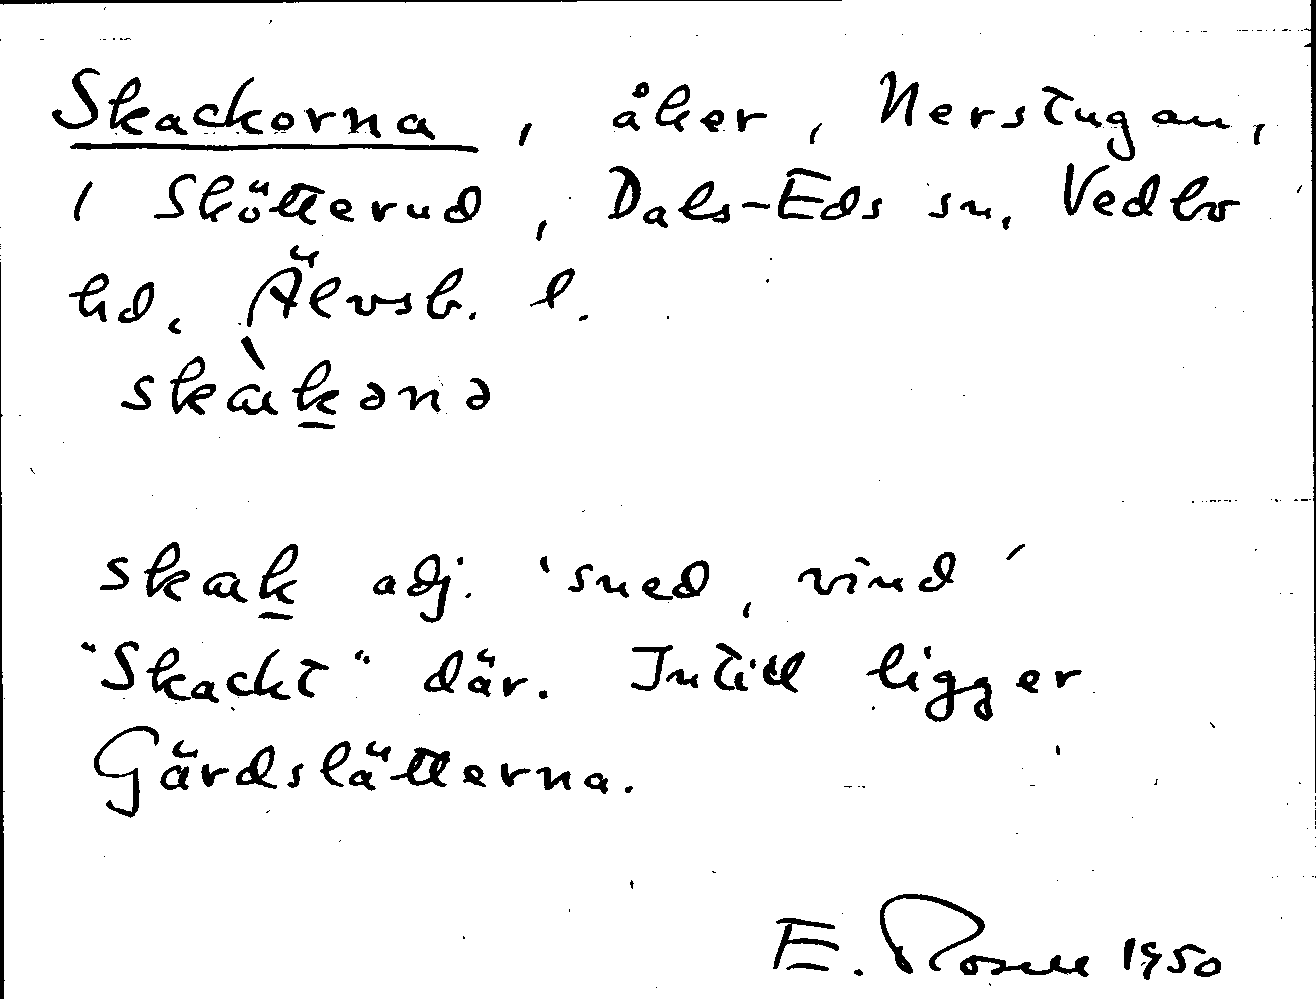 Skackorna, åker, Nerstugan,
1 Skötterud, Dals-Eds sn, Vedbo
hd. Älvsb. l.
skàk̲ənə
skak̲ adj. 'sned, vind'
"Skackt" där. Intill ligger
Gärdslätterna.
E. Rosell 1950